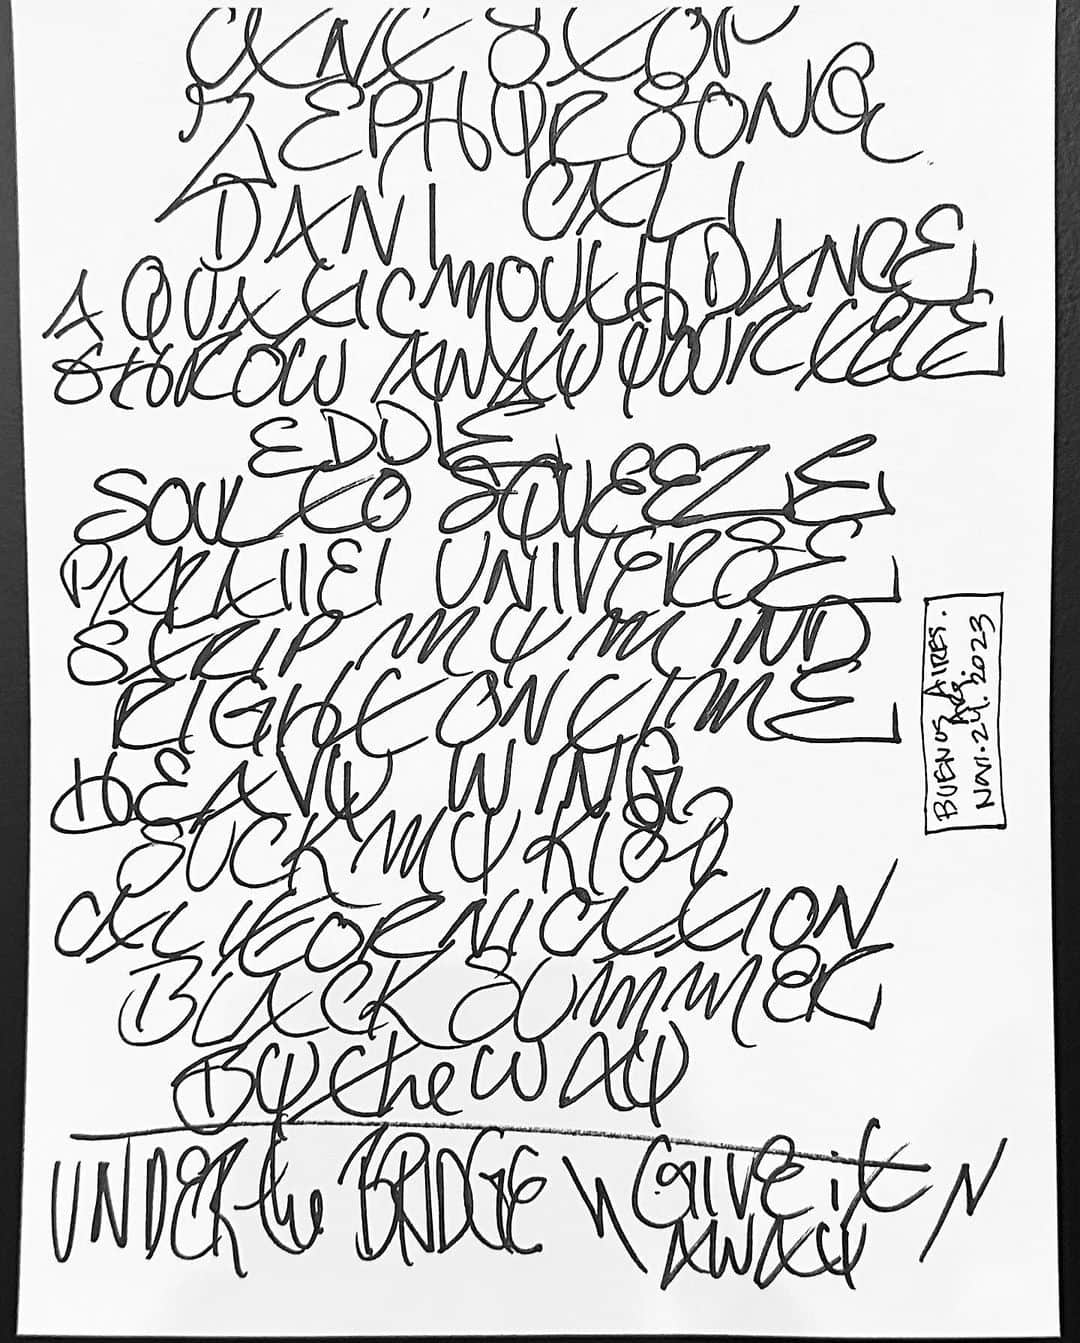 CAN'T STOP
ZEPHYR SONG
DANI CALI
AQUATIC MOUTH DANCE
THROW AWAY YOUR TELE
EDDIE
SOUL TO SQUEEZE
PARALLEL UNIVERSE
STRIP MY MIND
RIGHT ON TIME
HEAVY WING
SUCK MY KISS
CALIFORNICATION
BLACK SUMMER
BY the WAY
UNDER the BRIDGE \ GIVE it /
AWAY
BUENOS AIRES.
ARG.
NOV. 24. 2023